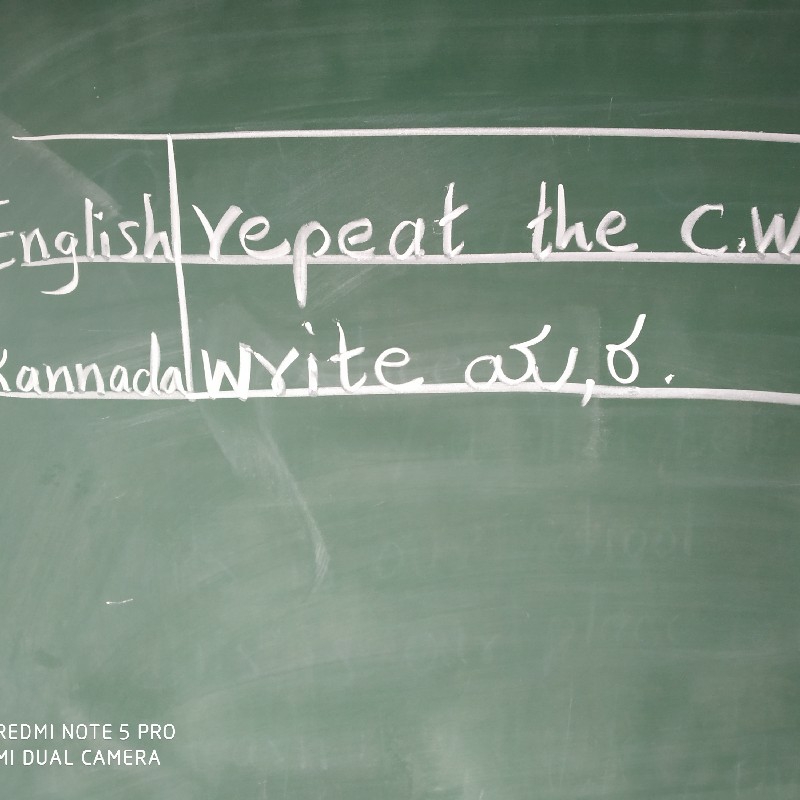 English repeat the C.W
Kannada write ಯ, ರ.
REDMI NOTE 5 PRO
MI DUAL CAMERA